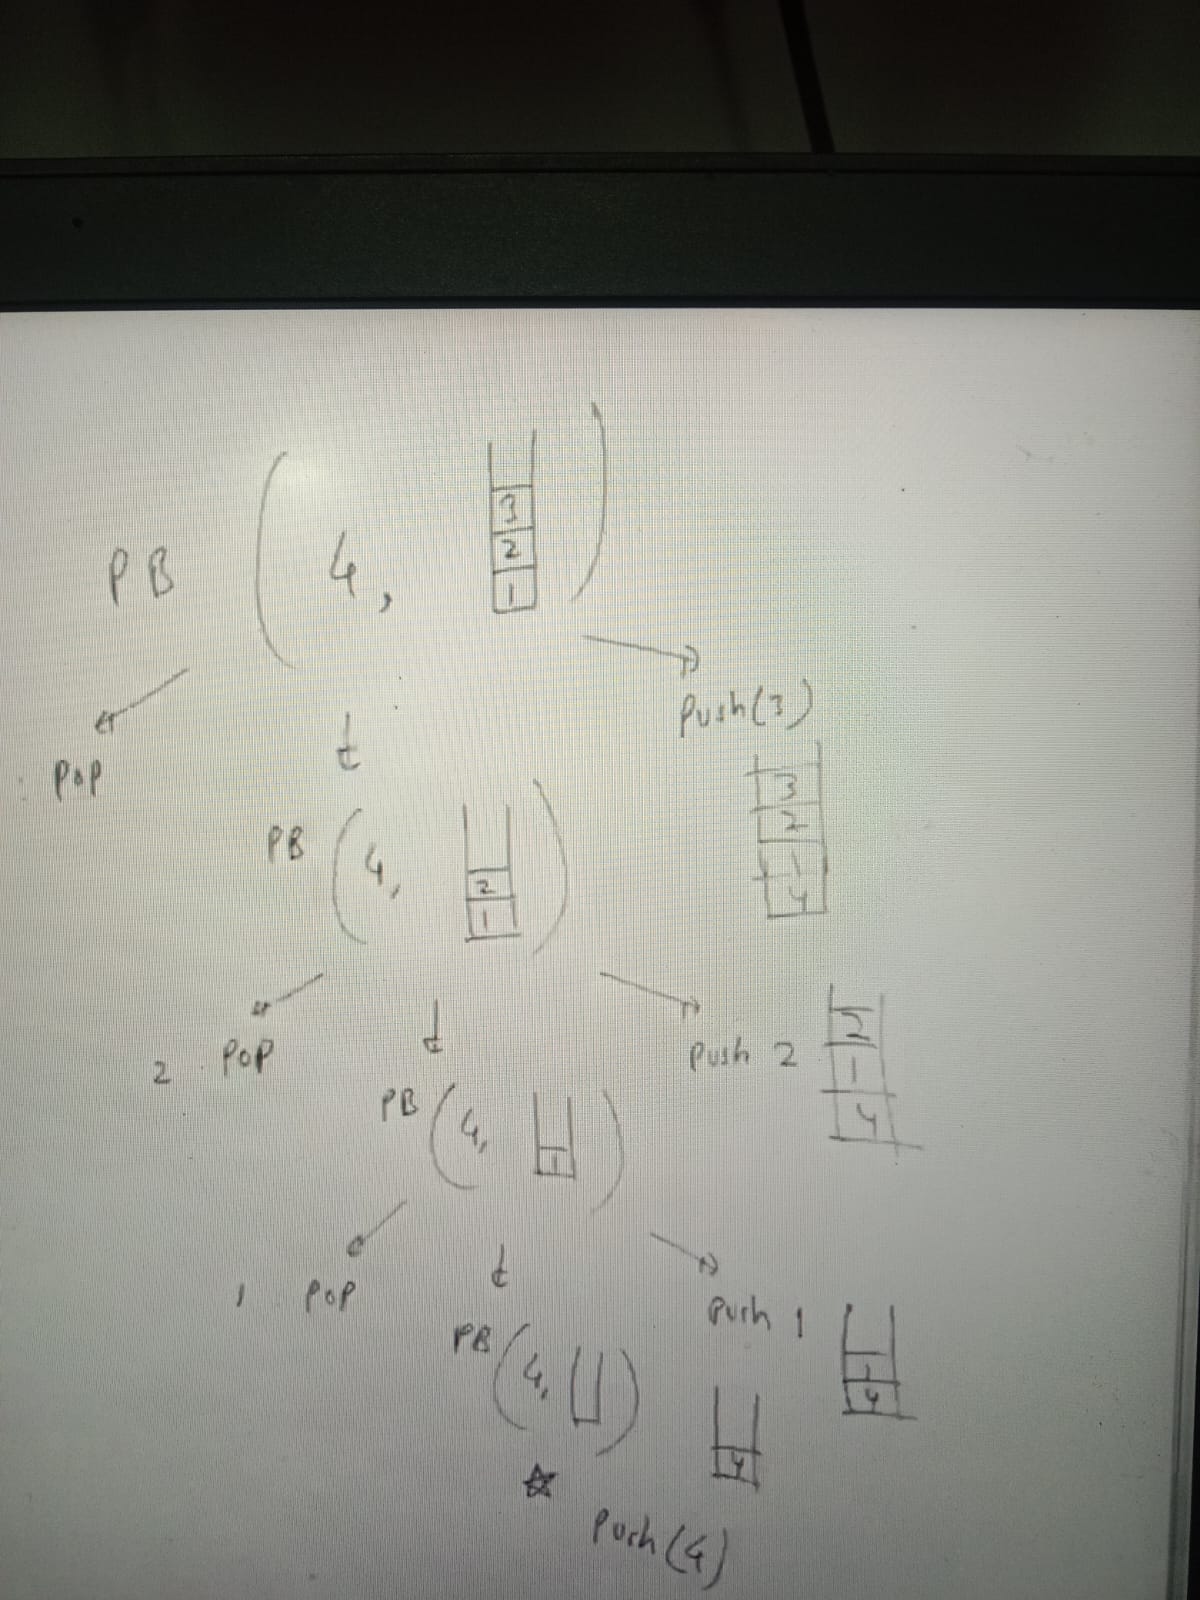 PB ( 4, 3 2 1 )
Pop
Push(3)
3
2
1
4
PB ( 4, 2 1 )
2 Pop
Push 2
2
1
4
PB ( 4, 1 )
1 Pop
Push 1
1
4
PB ( 4, )
4
☆
Push (4)